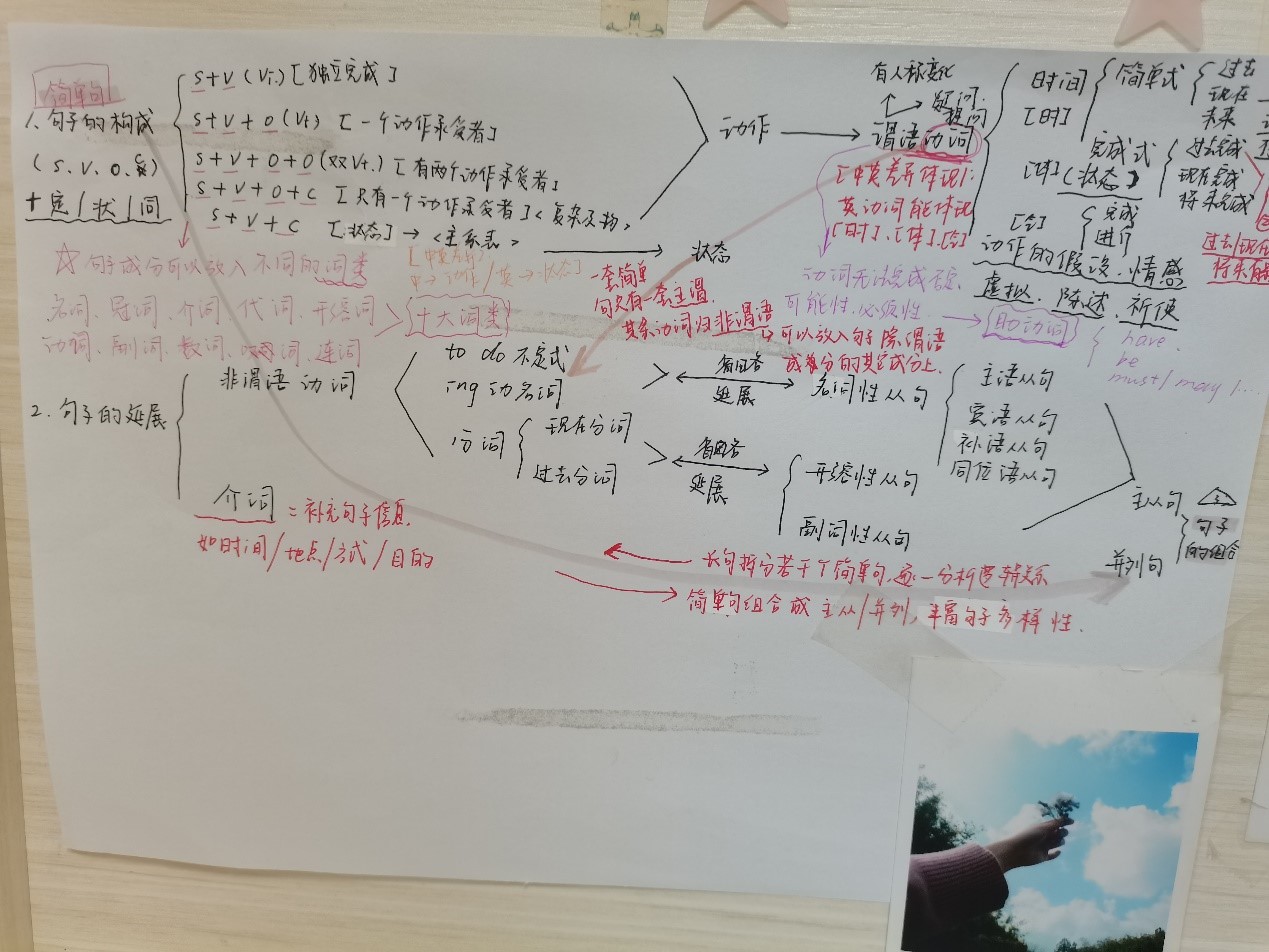 简单句
1、句子的构成
(S、V、O、C)
+定/状/同
S+V(Vi)[独立完成]
S+V+O(Vt) [一个动作承受者]
S+V+O+O(双Vt.)[有两个动作承受者]
S+V+O+C [只有一个动作承受者]<复杂及物>
S+V+C [状态]→<主系表>
动作
状态
有人称变化
疑问
谓语动词
[中英差异体现]:
英动词能体现
[时]、[体]、[态]
时间
[时]
简单式
过去
现在
未来
[体](状态)
完成式
过去完成
现在完成
将来完成
[态]
完成
进行
动作的假设、情感
虚拟、陈述、祈使
过去/现在
☆句子成分可以放入不同的词类
名词、冠词、介词、代词、形容词
动词、副词、数词、叹词、连词
十大词类
中→动作/英→状态]
一套简单
句只有一套主谓,
其余动词归非谓语
↳可以放入句子除谓语
成分的其它成分上.
动词无法完成否定、
可能性、必须性
助动词
have.
be
must/may/...
2、句子的延展
非谓语动词
to do 不定式
ing 动名词
分词
现在分词
过去分词
介词 =补充句子信息
如时间/地点/方式/目的
省略
延展
名词性从句
主语从句
宾语从句
补语从句
同位语从句
省略
延展
形容性从句
副词性从句
主从句
并列句
句子
的组合
长句拆分若干个简单句,逐一分析逻辑关系
简单句组合成主从/并列,丰富句子多样性.